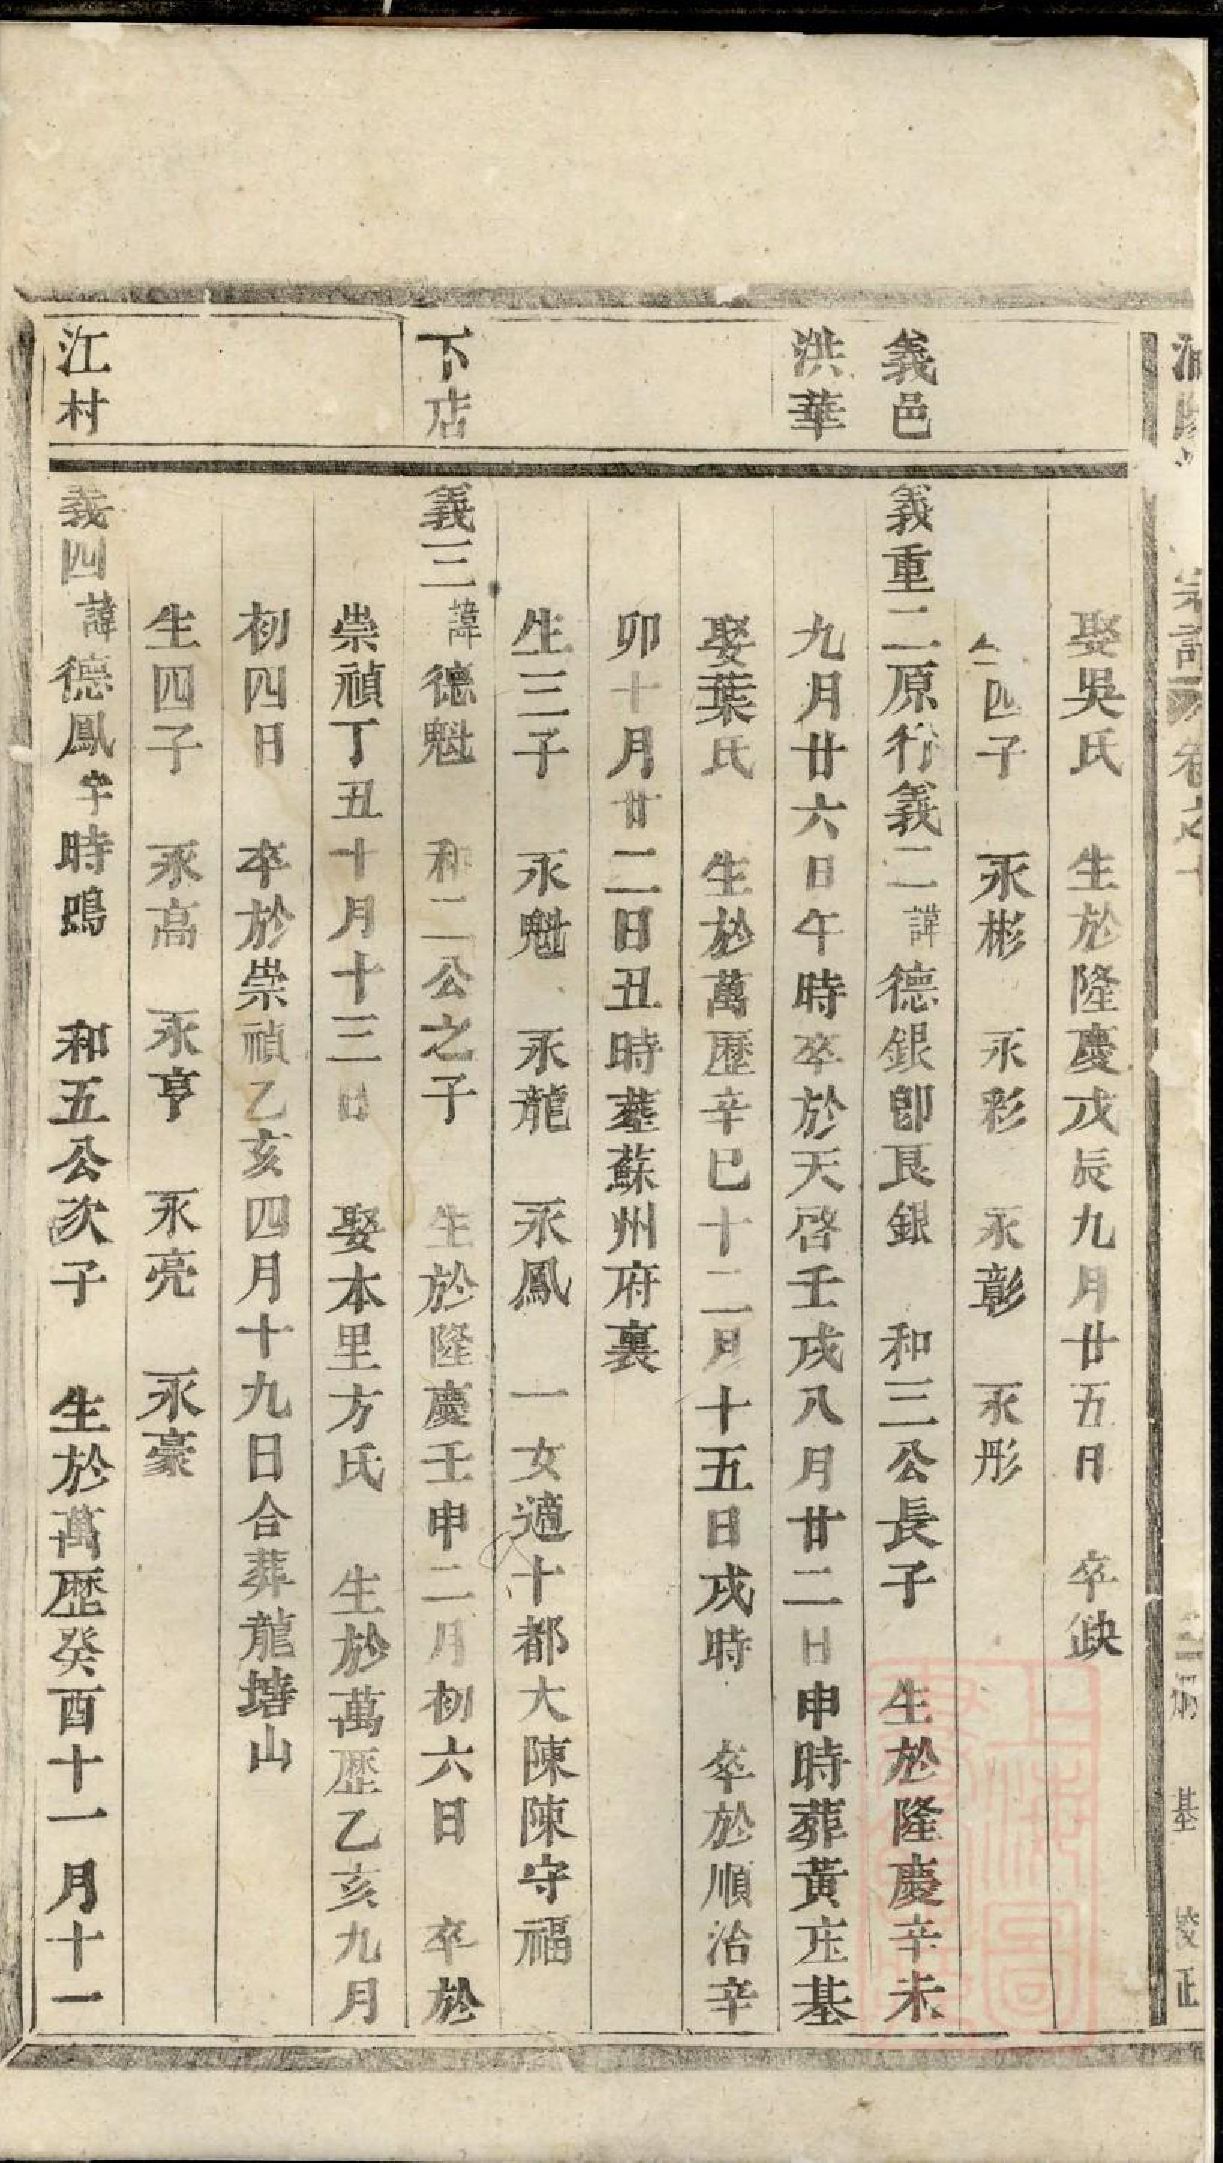 宗譜 卷之十
基 校正
娶吳氏 生於隆慶戊辰九月廿五日 卒缺
生四子 永彬 永彩 永彰 永彤
義邑
義重二原行義二諱德銀卽艮銀 和三公長子 生於隆慶辛未
洪華
九月廿六日午時卒於天啓壬戌八月廿二日申時葬黃庄基
娶葉氏 生於萬歷辛巳十二月十五日戌時 卒於順治辛
卯十月廿二日丑時葬蘇州府裏
生三子 永魁 永龍 永鳳 一女適十都大陳陳守福
下店
義三諱德魁 和二公之子 生於隆慶壬申二月初六日 卒於
崇禎丁丑十月十三日 娶本里方氏 生於萬歷乙亥九月
初四日 卒於崇禎乙亥四月十九日合葬龍塘山
生四子 永高 永亨 永亮 永豪
江村
義四諱德鳳字時鳴 和五公次子 生於萬歷癸酉十一月十一